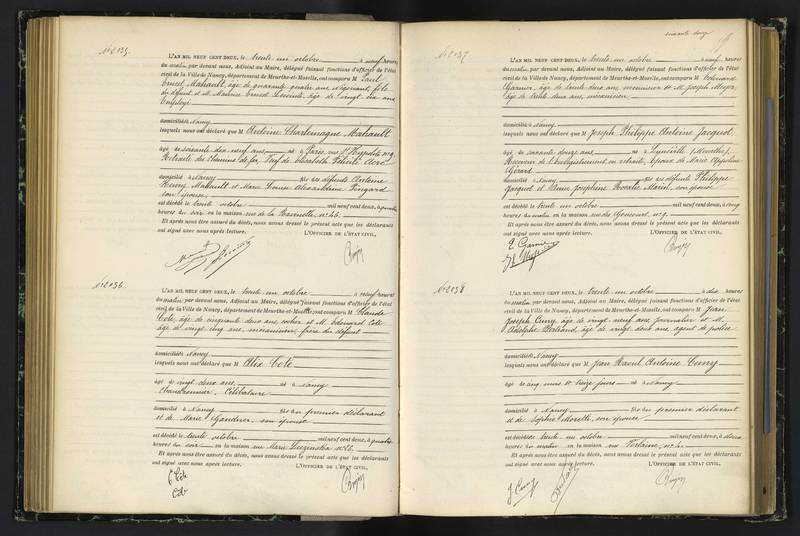 No 2035.
L'AN MIL NEUF CENT DEUX, le trente un octobre à neuf heures
du matin par devant nous, Adjoint au Maire, délégué faisant fonctions d'officier de l'état
civil de la Ville de Nancy, département de Meurthe-et-Moselle, ont comparu M Paul
Ernest Mahault, âgé de quarante quatre ans, négociant, fils
du défunt et M. Maurice Ernest âgé de vingt six ans
Employé
domiciliés à Nancy
lesquels nous ont déclaré que M Antoine Charlemagne Mahault
âgé de soixante dix neuf ans né à Paris, rue St Hyppolite no 9.
Retraité des Chemins de fer, Veuf de Elisabeth
domicilié à Nancy fils des défunts Antoine
Henry Mahault et Marie Louise Alexandrine
son épouse
est décédé le trente octobre mil neuf cent deux, à quatre
heures du soir en la maison rue de la Ravinelle, no 46.
Et après nous être assuré du décès, nous avons dressé le présent acte que les déclarants
ont signé avec nous après lecture. L'OFFICIER DE L'ÉTAT CIVIL,
No 2036.
L'AN MIL NEUF CENT DEUX, le trente un octobre à neuf heures
du matin par devant nous, Adjoint au Maire, délégué faisant fonctions d'officier de l'état
civil de la Ville de Nancy, département de Meurthe-et-Moselle, ont comparu M Claude
Cote, âgé de cinquante deux ans, et M. Edouard Cote
âgé de vingt cinq ans, mécanicien, frère du défunt
domiciliés à Nancy
lesquels nous ont déclaré que M Alix Cote
âgé de vingt deux ans né à Nancy
Chaudronnier, Célibataire
domicilié à Nancy fils du premier déclarant
et de Marie son épouse
est décédé le trente octobre mil neuf cent deux, à quatre
heures du soir en la maison rue Marie Leczinska no 26.
Et après nous être assuré du décès, nous avons dressé le présent acte que les déclarants
ont signé avec nous après lecture. L'OFFICIER DE L'ÉTAT CIVIL,
Cote
Cote
soixante douze
No 2037.
L'AN MIL NEUF CENT DEUX, le trente un octobre à neuf heures
du matin par devant nous, Adjoint au Maire, délégué faisant fonctions d'officier de l'état
civil de la Ville de Nancy, département de Meurthe-et-Moselle, ont comparu M Edouard
Garnier, âgé de trente deux ans, menuisier et M. Joseph Meyer
âgé de trente deux ans, menuisier
domiciliés à Nancy
lesquels nous ont déclaré que M Joseph Philippe Antoine Jacquot
âgé de soixante douze ans né à Lunéville (Meurthe).
Receveur de l'enregistrement en retraite, époux de Marie Appoline
Gérard
domicilié à Nancy fils des défunts Philippe
Jacquot et Jeanne Joséphine Rosalie Marin, son épouse
est décédé le trente un octobre mil neuf cent deux, à cinq
heures du matin en la maison rue de Goncourt no 9.
Et après nous être assuré du décès, nous avons dressé le présent acte que les déclarants
ont signé avec nous après lecture. L'OFFICIER DE L'ÉTAT CIVIL,
E Garnier
No 2038
L'AN MIL NEUF CENT DEUX, le trente un octobre à dix heures
du matin par devant nous, Adjoint au Maire, délégué faisant fonctions d'officier de l'état
civil de la Ville de Nancy, département de Meurthe-et-Moselle, ont comparu M Jean
Joseph Cuny, âgé de vingt neuf ans journalier et M.
Adolphe Bertrand, âgé de vingt deux ans, agent de police
domiciliés à Nancy
lesquels nous ont déclaré que M Jean Raoul Antoine Cuny
âgé de cinq mois et treize jours né à Nancy
domicilié à Nancy fils du premier déclarant
et de Sophie Morelle, son épouse
est décédé le trente un octobre mil neuf cent deux, à deux
heures du matin en la maison rue Verlaine, no 4.
Et après nous être assuré du décès, nous avons dressé le présent acte que les déclarants
ont signé avec nous après lecture. L'OFFICIER DE L'ÉTAT CIVIL,
J. Cuny